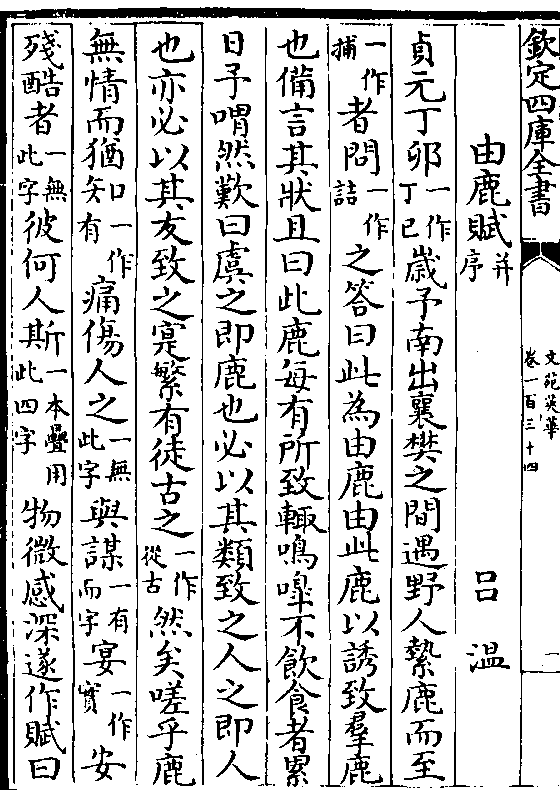 欽定四庫全書
文苑英華
卷一百三十四
一
由鹿賦并序 呂溫
貞元丁卯一作丁已歳予南出襄樊之間遇野人縶鹿而至
一作捕者問一作詰之答曰此為由鹿由此鹿以誘致羣鹿
也備言其狀且曰此鹿每有所致輙鳴嘷不飲食者累
日予喟然歎曰虞之即鹿也必以其類致之人之即人
也亦必以其友致之寔繁有徒古之一作從古然矣嗟乎鹿
無情而猶知一作有痛傷人之一無此字與謀一有而字宴一作實安
殘酷者一無此字彼何人斯一本疊用此四字物微感深遂作賦曰